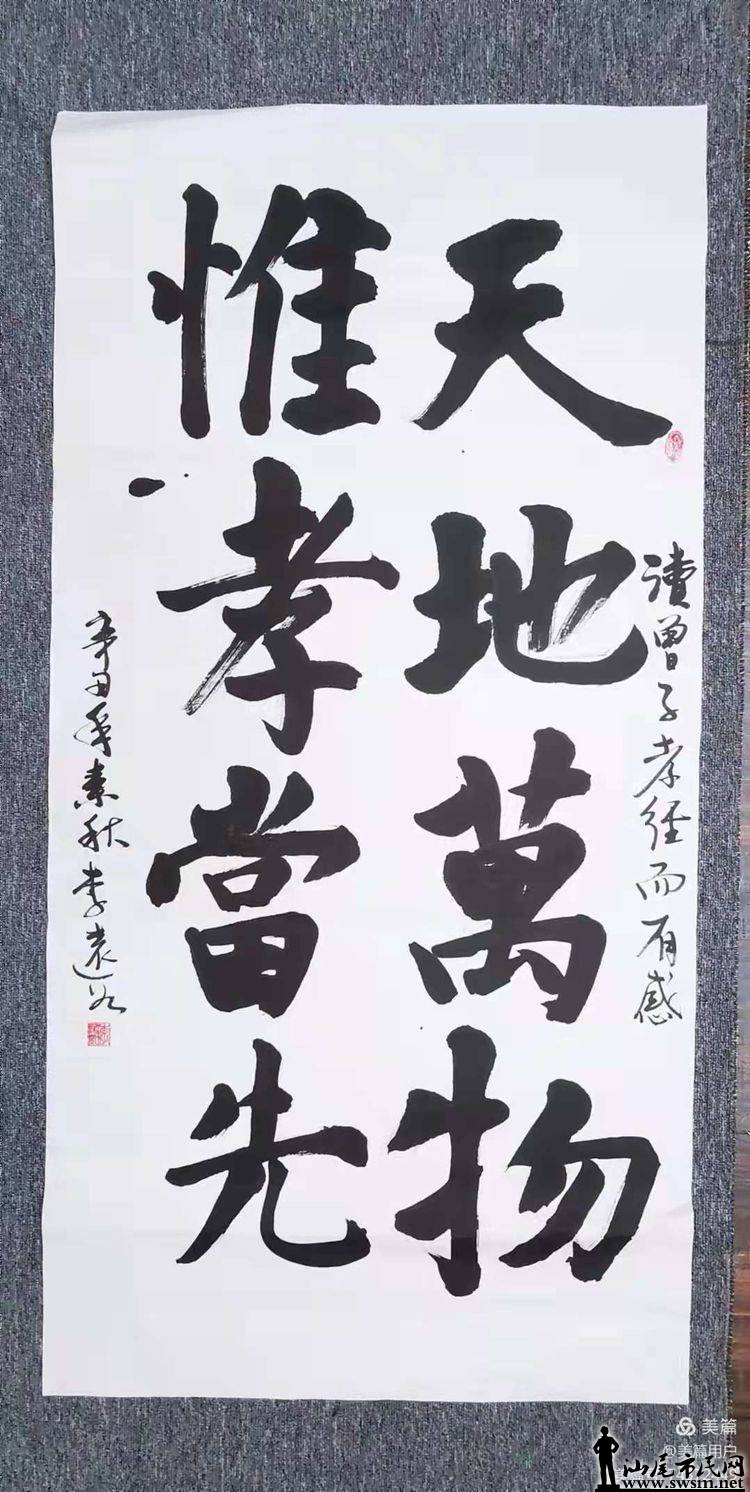 讀曾子孝经而有感
天地萬物
惟孝當先
辛丑年素秋李袁
美篇
@美篇用户
汕尾市民网
www.swsm.net